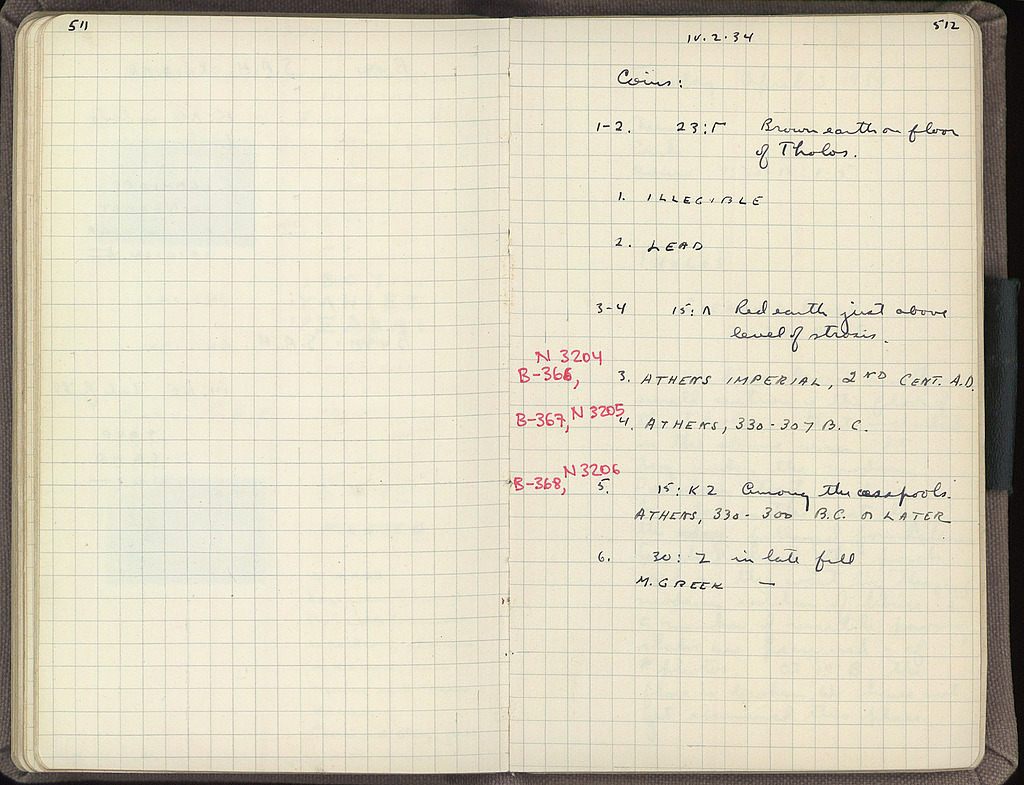 511
512
IV.2.34
Coins:
1-2. 23:Γ Brown earth on floor
of Tholos.
1. ILLEGIBLE
2. LEAD
3-4 15:Λ Red earth just above
level of strosis.
N 3204
B-366, 3. ATHENS IMPERIAL, 2ND CENT. A.D.
B-367, N 3205 4. ATHENS, 330-307 B.C.
B-368, N 3206 5. 15:K2 Among the cesspools.
ATHENS, 330-300 B.C. or LATER
6. 30:Z in late fill
M. GREEK —